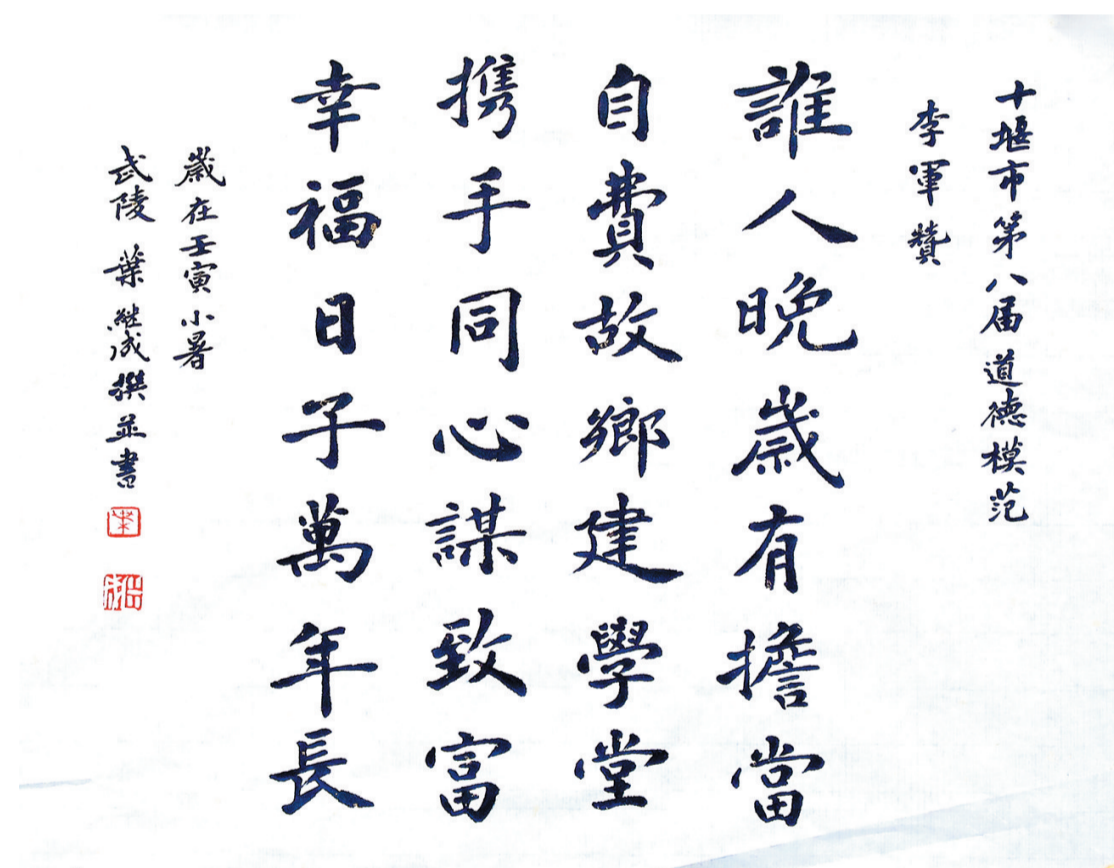 十堰市第八届道德模范
李軍贊
誰人晚歲有擔當
自費故鄉建學堂
携手同心謀致富
幸福日子萬年長
歲在壬寅小暑
武陵葉継成撰並書